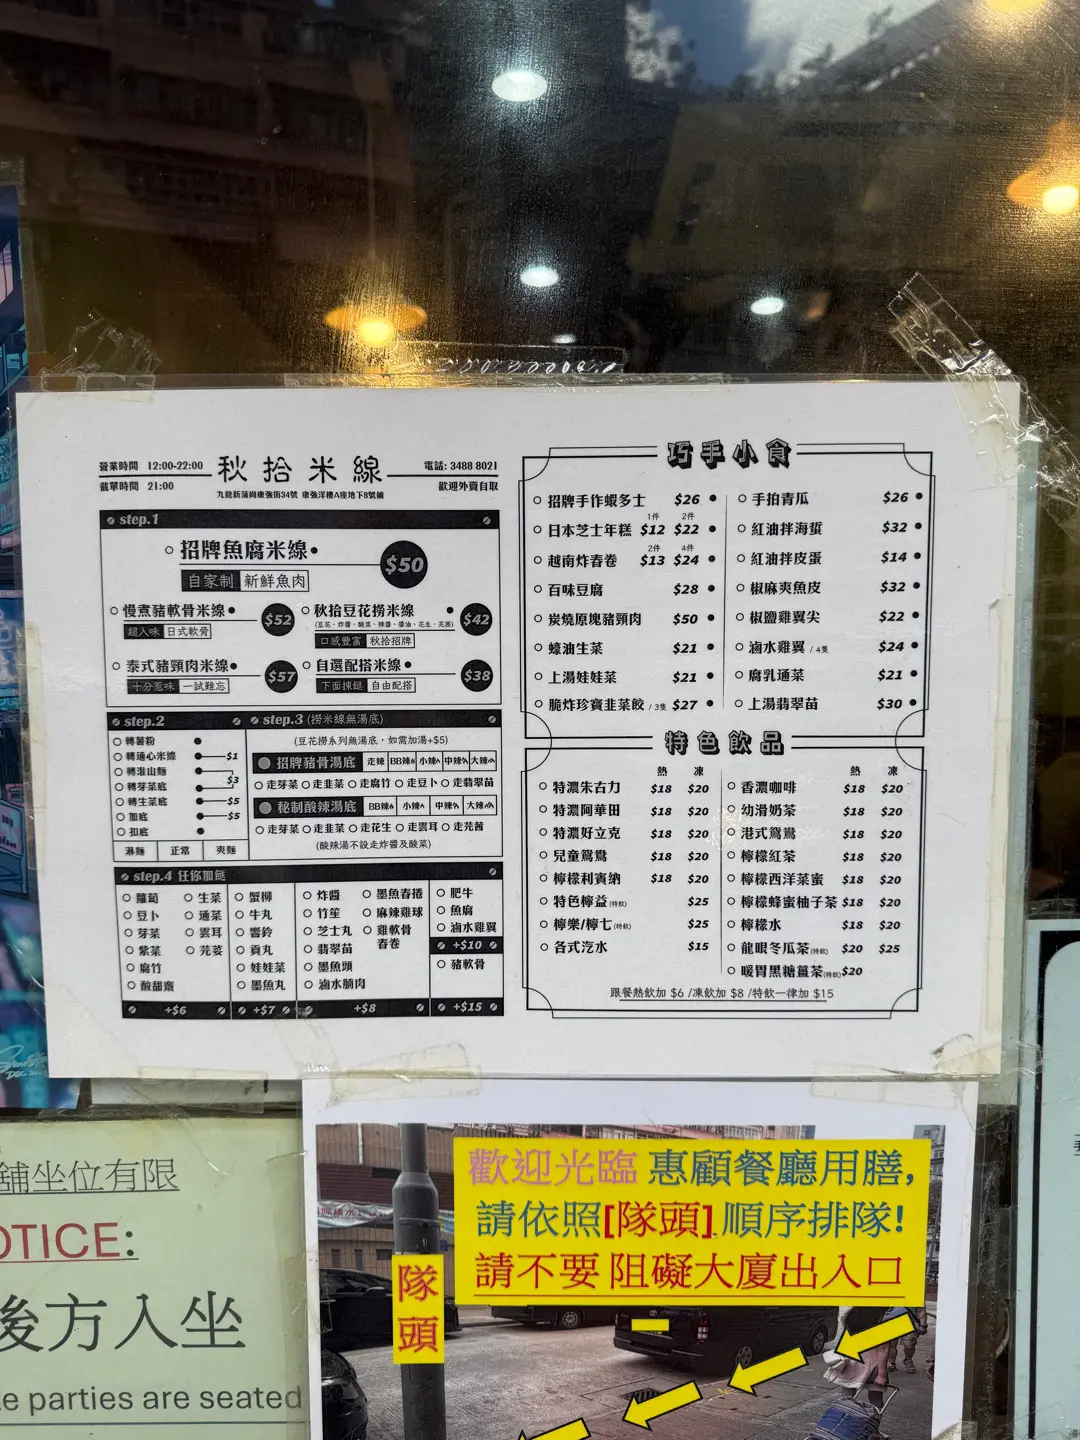 營業時間 12:00-22:00
截單時間 21:00
秋拾米線
電話: 3488 8021
歡迎外賣自取
九龍新蒲崗康強街34號 康強洋樓A座地下8號舖
step.1
招牌魚腐米線
$50
自家制 新鮮魚肉
慢煮豬軟骨米線 $52
超入味 日式軟骨
秋拾豆花撈米線 $42
(豆花、炸醬、酸菜、辣醬、醬油、花生、芫茜)
口感豐富 秋拾招牌
泰式豬頸肉米線 $57
十分惹味 一試難忘
自選配搭米線 $38
下面揀餸 自由配搭
step.2
轉薯粉
轉通心米線 $1
轉淮山麵
$3
轉芽菜底
轉生菜底 $5
加底 $5
扣底
淋麵 正常 爽麵
step.3 (撈米線無湯底)
(豆花撈系列無湯底，如需加湯+$5)
招牌豬骨湯底 走辣 BB辣 小辣 中辣 大辣
走芽菜 走韭菜 走腐竹 走豆卜 走翡翠苗
秘制酸辣湯底 BB辣 小辣 中辣 大辣
走芽菜 走韭菜 走花生 走雲耳 走芫茜
(酸辣湯不設走炸醬及酸菜)
step.4 任你加餸
蘿蔔 生菜
豆卜 通菜
芽菜 雲耳
紫菜 芫荽
腐竹
酸甜齋
+$6
蟹柳
牛丸
響鈴
貢丸
娃娃菜
墨魚丸
+$7
炸醬 墨魚春捲
竹笙 麻辣雞球
芝士丸 雞軟骨
春卷
翡翠苗
墨魚頭
滷水腩肉
+$8
肥牛
魚腐
滷水雞翼
+$10
豬軟骨
+$15
巧手小食
招牌手作蝦多士 $26
1件 2件
日本芝士年糕 $12 $22
2件 4件
越南炸春卷 $13 $24
百味豆腐 $28
炭燒原塊豬頸肉 $50
蠔油生菜 $21
上湯娃娃菜 $21
脆炸珍寶韭菜餃 / 3隻 $27
手拍青瓜 $26
紅油拌海蜇 $32
紅油拌皮蛋 $14
椒麻爽魚皮 $32
椒鹽雞翼尖 $22
滷水雞翼 / 4隻 $24
腐乳通菜 $21
上湯翡翠苗 $30
特色飲品
熱 凍
特濃朱古力 $18 $20
特濃阿華田 $18 $20
特濃好立克 $18 $20
兒童鴛鴦 $18 $20
檸檬利賓納 $18 $20
特色檸益(特飲) $25
檸樂/檸七(特飲) $25
各式汽水 $15
熱 凍
香濃咖啡 $18 $20
幼滑奶茶 $18 $20
港式鴛鴦 $18 $20
檸檬紅茶 $18 $20
檸檬西洋菜蜜 $18 $20
檸檬蜂蜜柚子茶 $18 $20
檸檬水 $18 $20
龍眼冬瓜茶(特飲) $20 $25
暖胃黑糖薑茶(特飲) $20
跟餐熱飲加 $6 /凍飲加 $8 /特飲一律加 $15
舖坐位有限
OTICE:
後方入坐
te parties are seated
歡迎光臨 惠顧餐廳用膳,
請依照[隊頭] 順序排隊!
請不要 阻礙大廈出入口
隊
頭